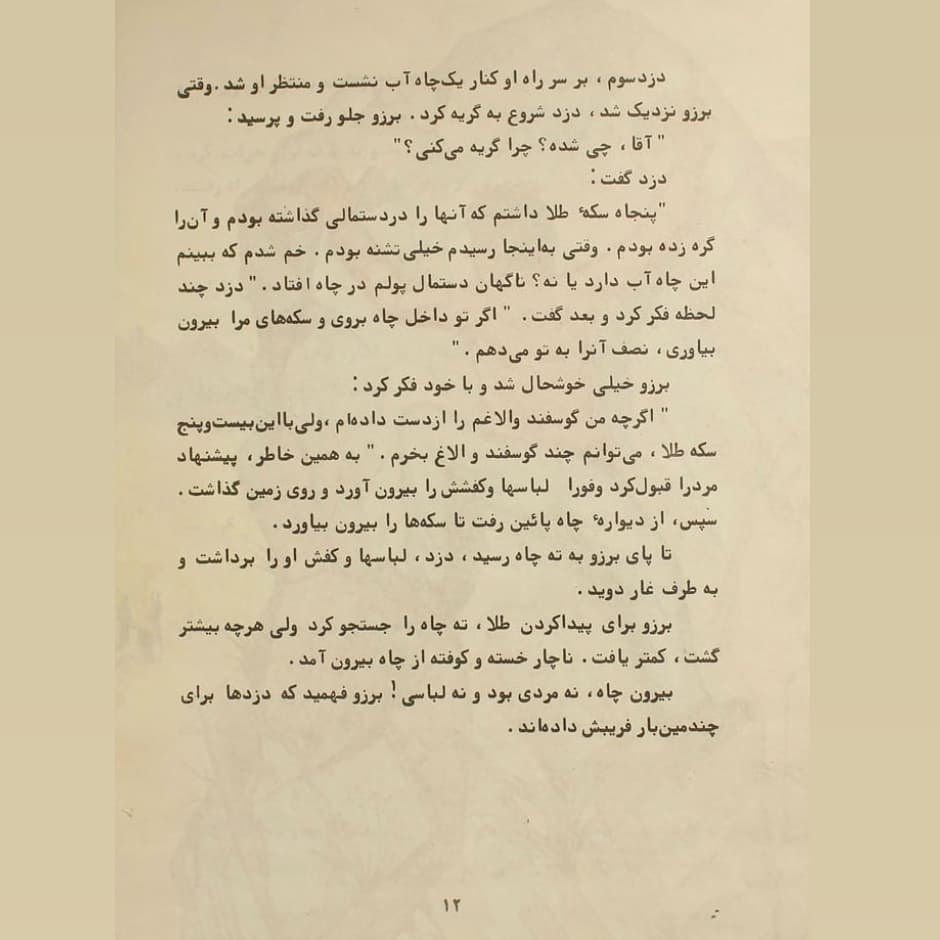 دزدسوم ، بر سر راه او کنار یک‌چاه آب نشست و منتظر او شد .وقتی
برزو نزدیک شد ، دزد شروع به گریه کرد . برزو جلو رفت و پرسید :
" آقا ، چی شده؟ چرا گریه می‌کنی؟"
دزد گفت :
"پنجاه سکهٔ طلا داشتم که آنها را دردستمالی گذاشته بودم و آن‌را
گره زده بودم . وقتی به‌اینجا رسیدم خیلی تشنه بودم . خم شدم که ببینم
این چاه آب دارد یا نه؟ ناگهان دستمال پولم در چاه افتاد . " دزد چند
لحظه فکر کرد و بعد گفت . " اگر تو داخل چاه بروی و سکه‌های مرا بیرون
بیاوری ، نصف آنرا به تو می‌دهم . "
برزو خیلی خوشحال شد و با خود فکر کرد :
" اگرچه من گوسفند والاغم را ازدست داده‌ام ،ولی‌بااین‌بیست‌وپنج
سکه طلا ، می‌توانم چند گوسفند و الاغ بخرم . " به همین خاطر ، پیشنهاد
مردرا قبول‌کرد وفورا لباسها وکفشش را بیرون آورد و روی زمین گذاشت .
سپس، از دیوارهٔ چاه پائین رفت تا سکه‌ها را بیرون بیاورد .
تا پای برزو به ته چاه رسید ، دزد ، لباسها و کفش او را برداشت و
به طرف غار دوید .
برزو برای پیداکردن طلا ، ته چاه را جستجو کرد ولی هرچه بیشتر
گشت ، کمتر یافت . ناچار خسته و کوفته از چاه بیرون آمد .
بیرون چاه ، نه مردی بود و نه لباسی ! برزو فهمید که دزدها برای
چندمین‌بار فریبش داده‌اند .
۱۲